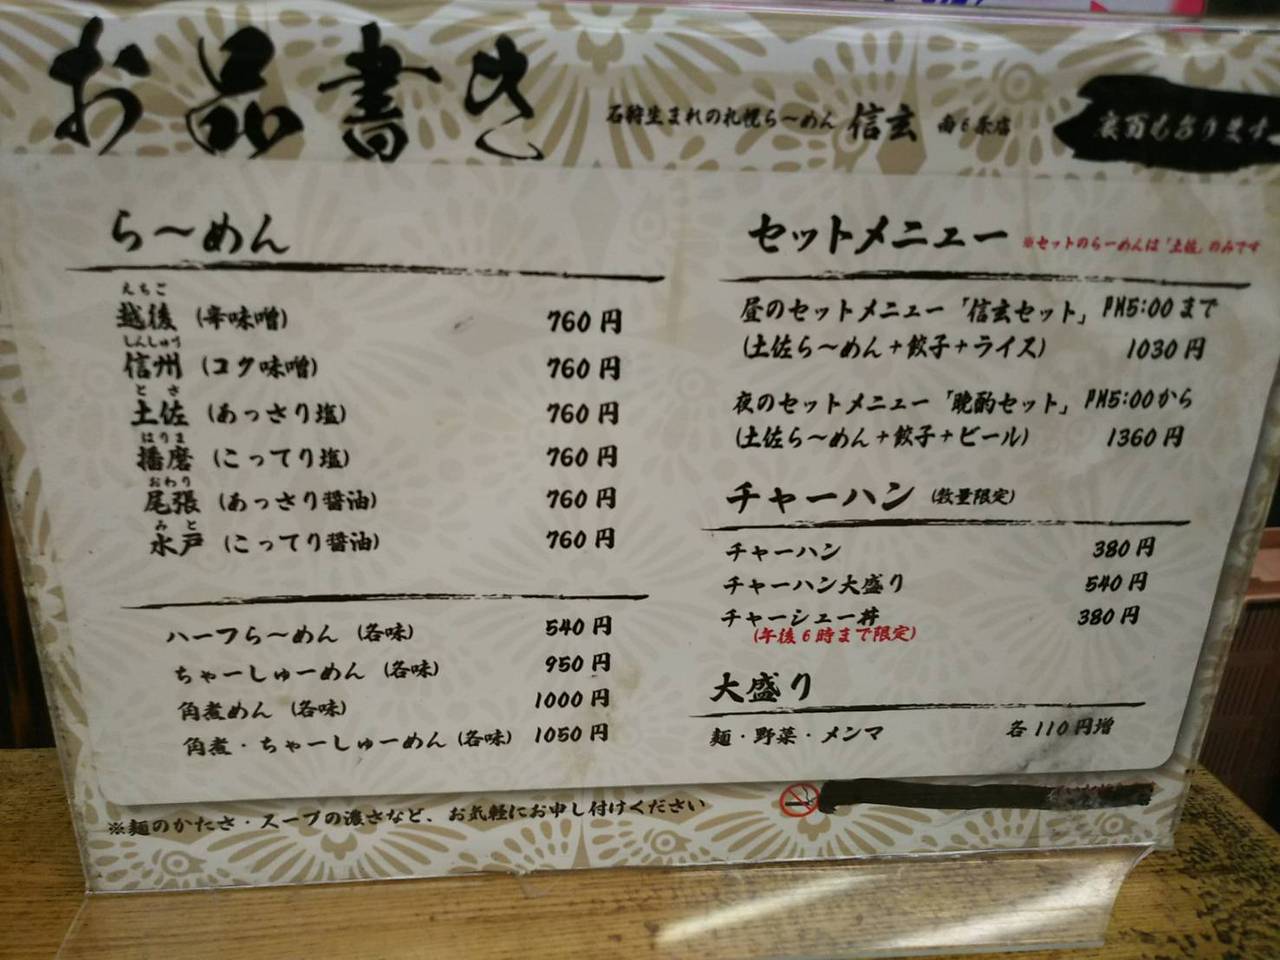 お品書き
石狩生まれの札幌ら〜めん 信玄 南6条店
裏面もあります
ら〜めん
えちご
越後 (辛味噌) 760円
しんしゅう
信州 (コク味噌) 760円
とさ
土佐 (あっさり塩) 760円
はりま
播磨 (こってり塩) 760円
おわり
尾張 (あっさり醤油) 760円
みと
水戸 (こってり醤油) 760円
ハーフら〜めん (各味) 540円
ちゃーしゅーめん (各味) 950円
角煮めん (各味) 1000円
角煮・ちゃーしゅーめん (各味) 1050円
セットメニュー ※セットのらーめんは「土佐」のみです
昼のセットメニュー「信玄セット」PM5:00まで
(土佐ら〜めん+餃子+ライス) 1030円
夜のセットメニュー「晩酌セット」PM5:00から
(土佐ら〜めん+餃子+ビール) 1360円
チャーハン (数量限定)
チャーハン 380円
チャーハン大盛り 540円
チャーシュー丼 380円
(午後6時まで限定)
大盛り
麺・野菜・メンマ 各110円増
※麺のかたさ・スープの濃さなど、お気軽にお申し付けください